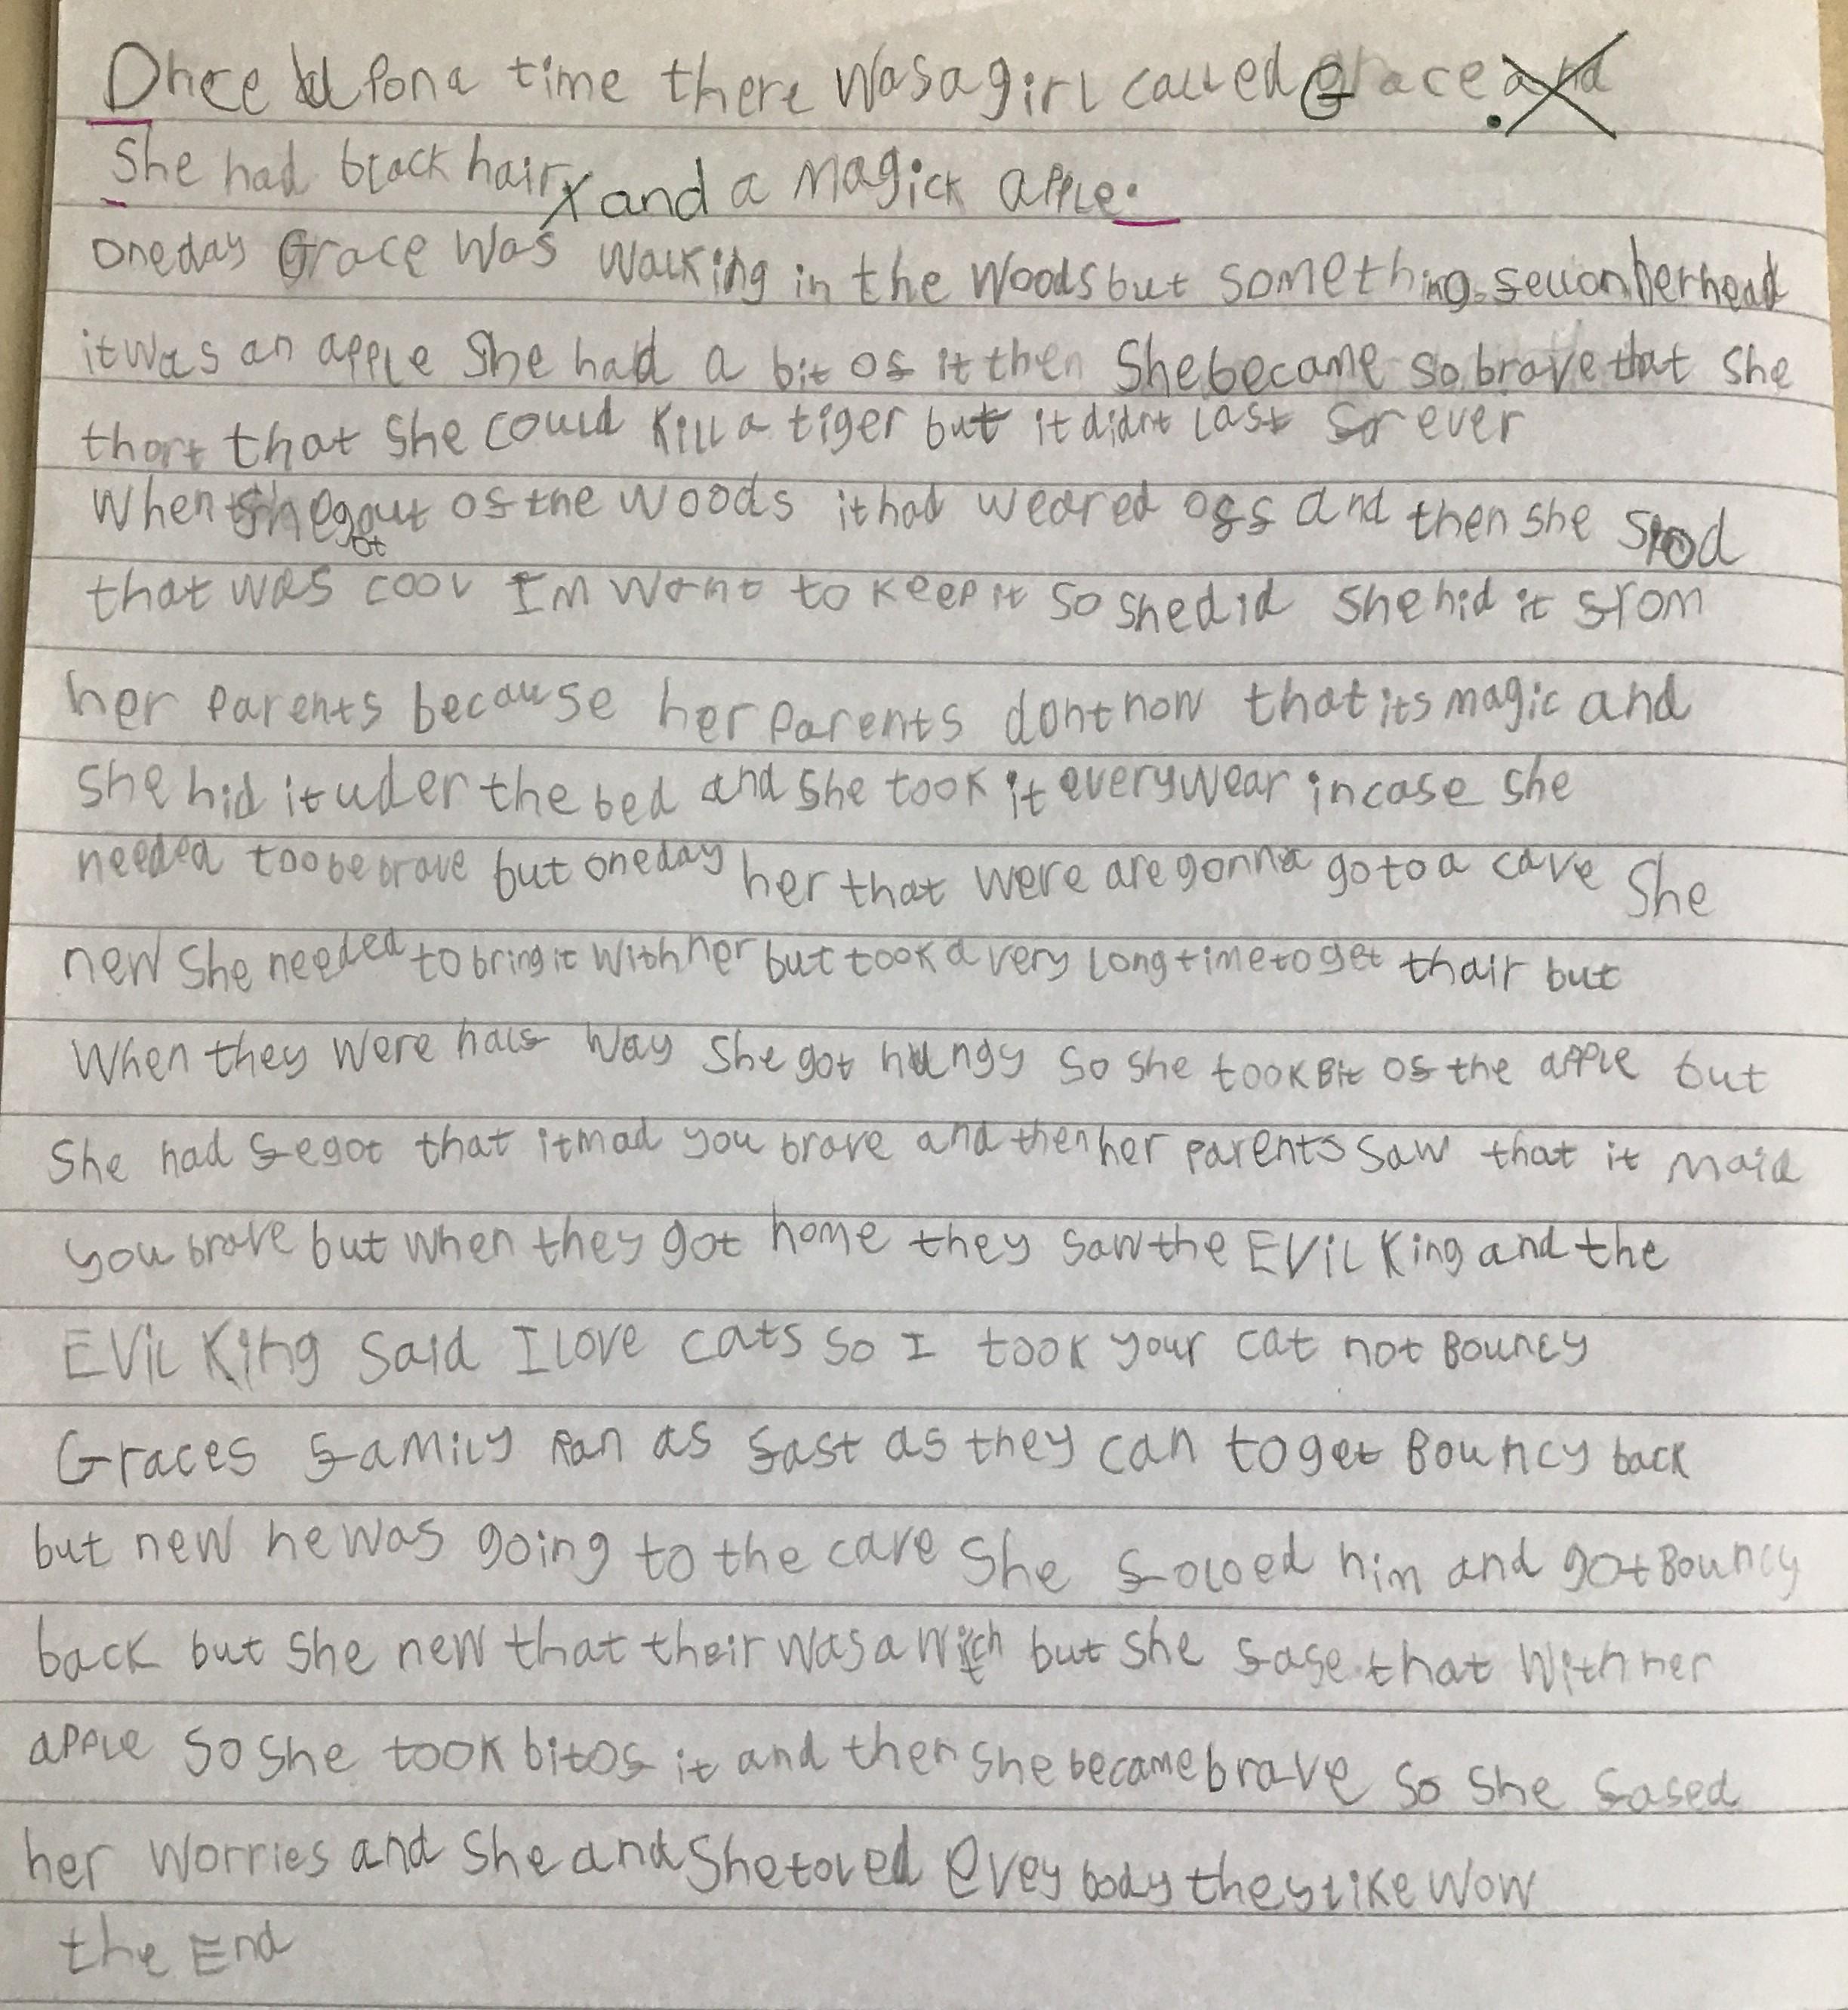 Once upon a time there was a girl called Grace. and
She had black hair and a magick apple.
one day Grace was walking in the woods but something fell on her head
it was an apple She had a bit of it then She became so brave that she
thort that she could kill a tiger but it didnt last for ever
When she got out of the woods it had weared off and then she
that was cool Im want to keep it so she did she hid it from
her parents because her parents dont now that its magic and
she hid it uder the bed and she took it everywear in case she
needed too be brave but one day her that were are gonna go to a cave She
new she needed to bring it with her but took a very long time to get thair but
When they were half way she got hungy so she took Bit of the apple but
She had fegot that it mad you brave and then her parents saw that it maid
you brave but when they got home they saw the EViL King and the
EViL King said I love cats so I took your cat not Bouncy
Graces family Ran as fast as they can to get Bouncy back
but new he was going to the cave She foloed him and got Bouncy
back but she new that their was a witch but she fase that with her
apple so she took bit of it and then she became brave so she fased
her worries and she and she toled evey body they like wow
the End